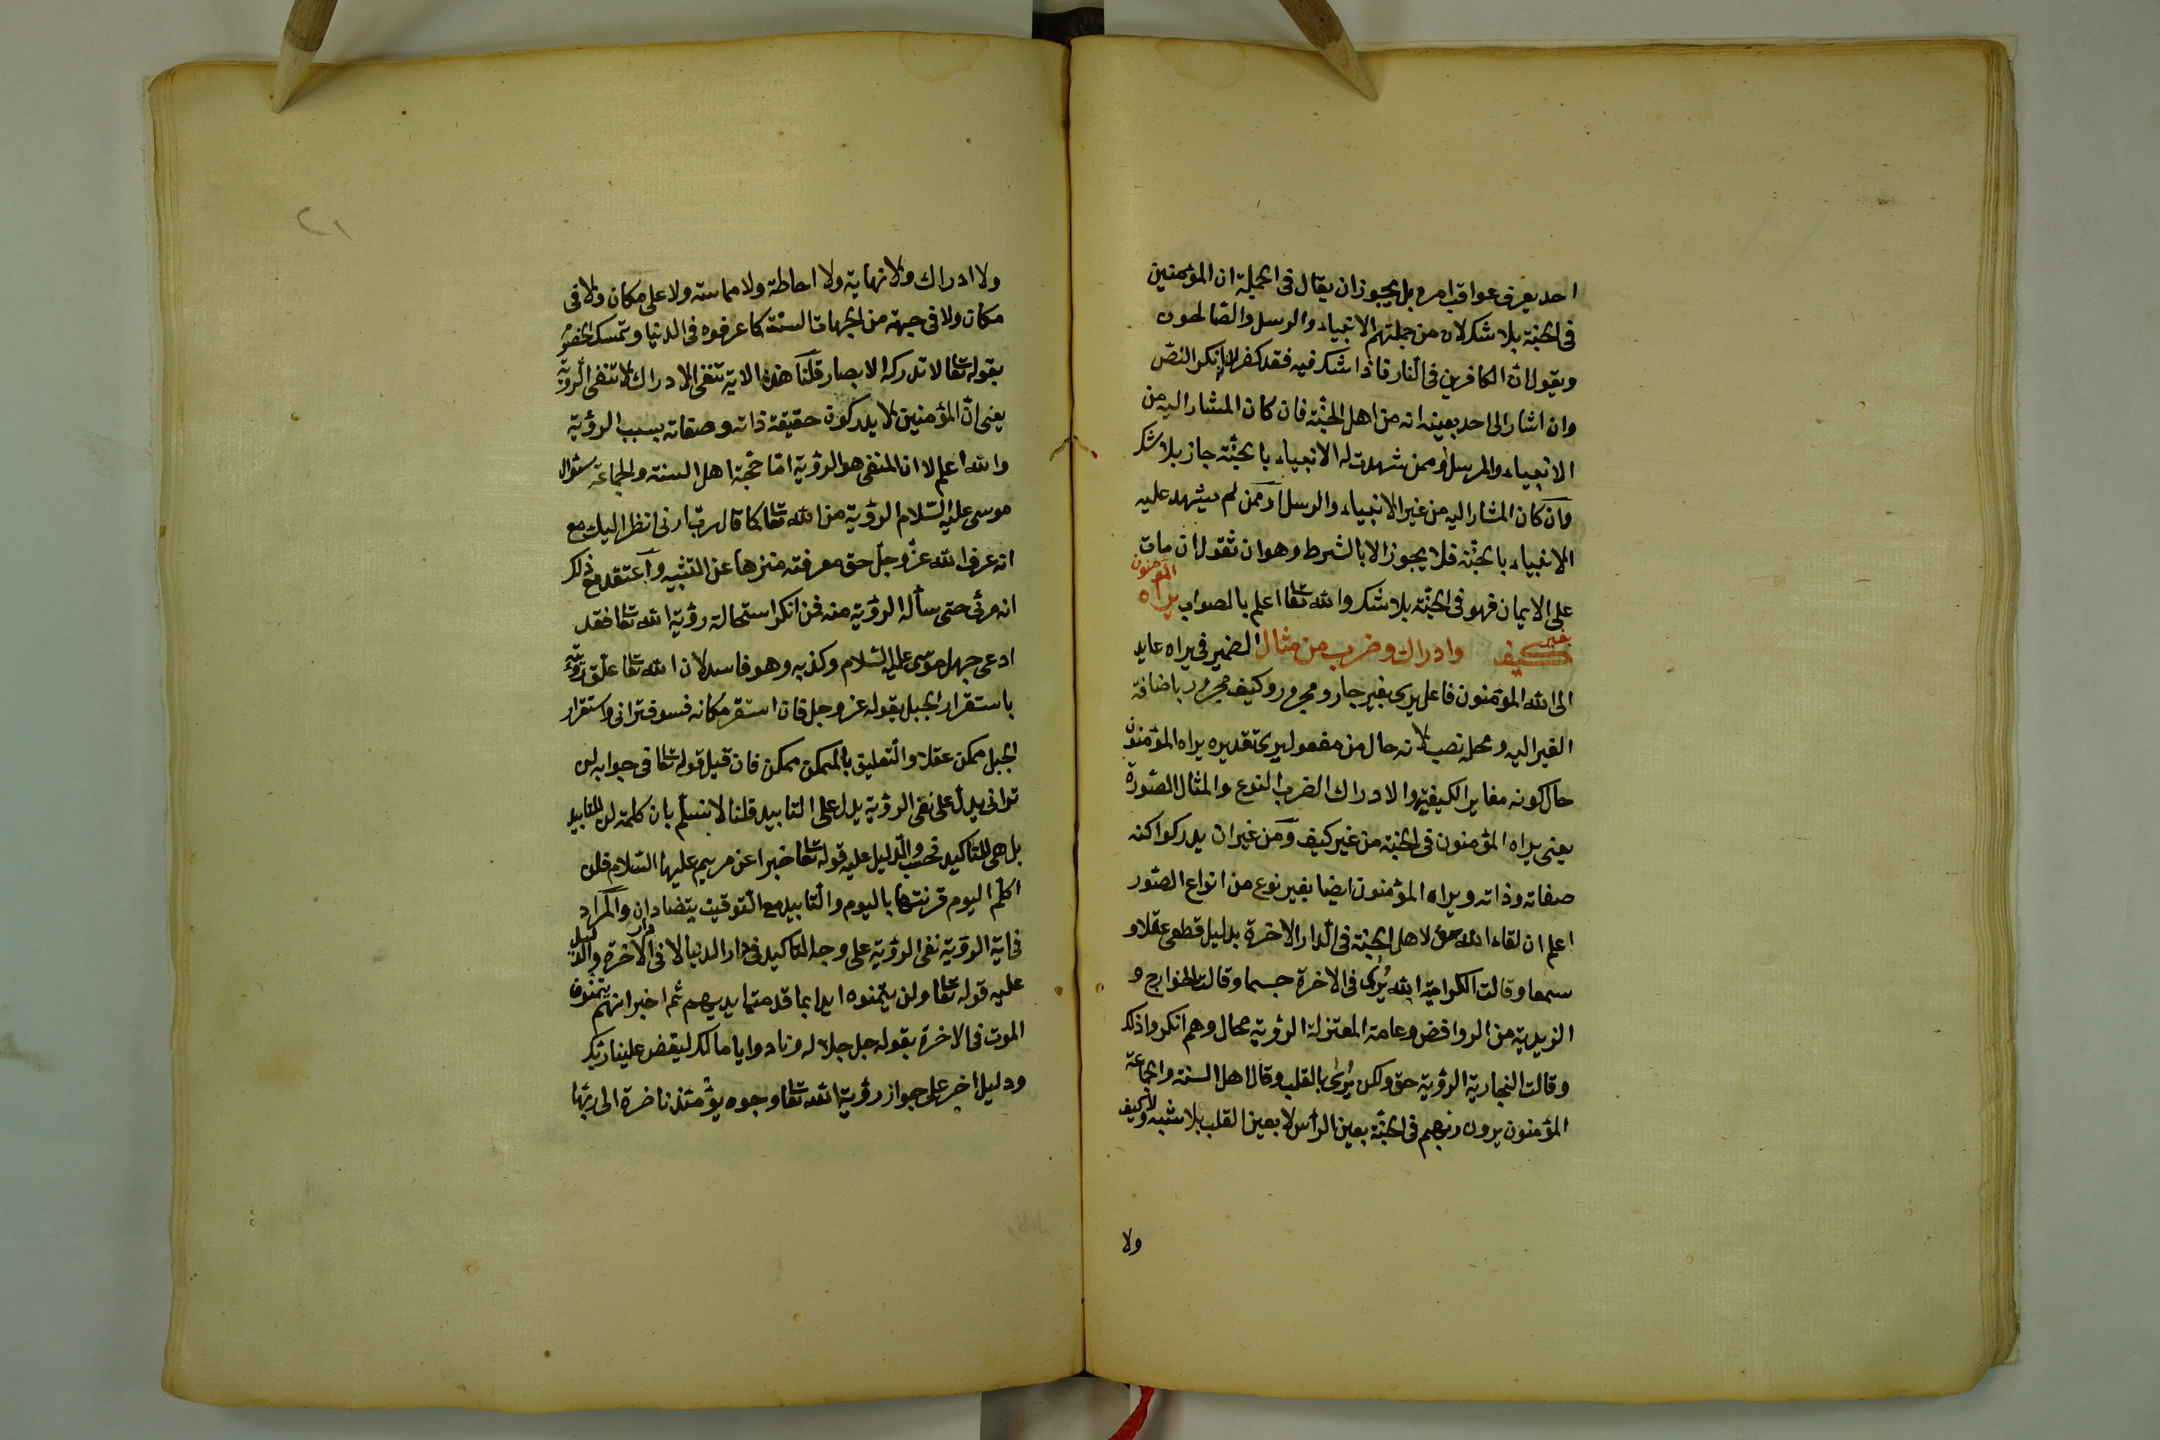 احد يعرف عواقب امره بل يجوز ان يقال فى الجملة ان المؤمنين
فى الجنة بلا شك لان من جملتهم الانبياء والرسل والصالحون
ويقول ان الكافرين فى النار فاذا شك فيه فقد كفر لانه انكر النص
وان اشار الى احد بعينه انه من اهل الجنة فان كان المشار اليه من
الانبياء والمرسل او ممن شهدت له الانبياء بالجنة جاز بلا شك
وان كان المشار اليه من غير الانبياء والرسل او ممن لم يشهد عليه
الانبياء بالجنة فلا يجوز الا بالشرط وهو ان تقول ان مات
على الايمان فهو فى الجنة بلا شك والله تعا اعلم بالصواب يراه المؤمنون
بغير كيف وادراك وضرب من مثال الضمير فى يراه عايد
الى الله المؤمنون فاعل يرى بغير جار ومجرور وكيف مجرور باضافة
الغير اليه ومحله نصب لانه حال من مفعول يرى تقديره يراه المؤمنون
حال كونه مغاير الكيفية والادراك الضرب النوع والمثال الصورة
يعنى يراه المؤمنون فى الجنة من غير كيف ومن غير ان يدركوا كنه
صفاته وذاته ويراه المؤمنون ايضا بغير نوع من انواع الصور
اعلم ان لقاء الله حق لاهل الجنة فى الدار الاخرة بدليل قطعى عقلا و
سمعا وقالت الكرامية الله يُرى فى الاخرة جسما وقالت الخوارج و
الزيدية من الروافض وعامة المعتزلة الرؤية محال وهم انكروا ذلك
وقالت النجارية الرؤية حق ولكن يُرى بالقلب وقال اهل السنة والجماعة
المؤمنون يرون ربهم فى الجنة بعين الرأس لا بعين القلب بلا شبه ولا كيف
ولا
ولا ادراك ولا نهاية ولا احاطة ولا مماسة ولا على مكان ولا فى
مكان ولا فى جهة من الجهات الستة كما عرفوه فى الدنيا وتمسك الخصم
بقوله تعا لا تدركه الابصار قلنا هذه الاية تنفى الادراك لا تنفى الرؤية
يعنى ان المؤمنين لا يدركون حقيقة ذاته وصفاته بسبب الرؤية
والله اعلم لا ان المنفى هو الرؤية امّا حجة اهل السنة والجماعة سؤال
موسى عليه السلام الرؤية من الله تعا كما قال رب ارنى انظر اليك مع
انه عرف الله عزّ وجلّ حق معرفته منزها عن التشبيه واعتقد مع ذلك
انه مرئى حتى سأله الرؤية منه فمن انكر استحالة رؤية الله تعا فقد
ادعى جهل موسى عليه السلام وكذبه وهو فاسد لان الله تعا علّق رؤيته
باستقرار الجبل بقوله عز وجل فان استقر مكانه فسوف ترانى واستقرار
الجبل ممكن عقلا والتعليق بالممكن ممكن فان قيل قوله تعا فى جوابه لن
ترانى يدلّ على نفى الرؤية يدل على التابيد قلنا لا نسلّم بان كلمة لن للتابيد
بل هى للتاكيد فحسب والدليل عليه قوله تعا خبرا عن مريم عليها السلام فلن
اكلّم اليوم قرنتها باليوم والتابيد مع التوقيت يتضادان والمراد
فى اية الرؤية نفى الرؤية على وجه التاكيد فى دار الدنيا لا فى دار الاخرة والدليل
عليه قوله تعا ولن يتمنوه ابدا بما قدمت ايديهم ثم اخبر انهم يتمنون
الموت فى الاخرة بقوله جل جلاله ونادوا يا مالك ليقض علينا ربك
ودليل اخر على جواز رؤية الله تعا وجوه يومئذ ناضرة الى ربّها